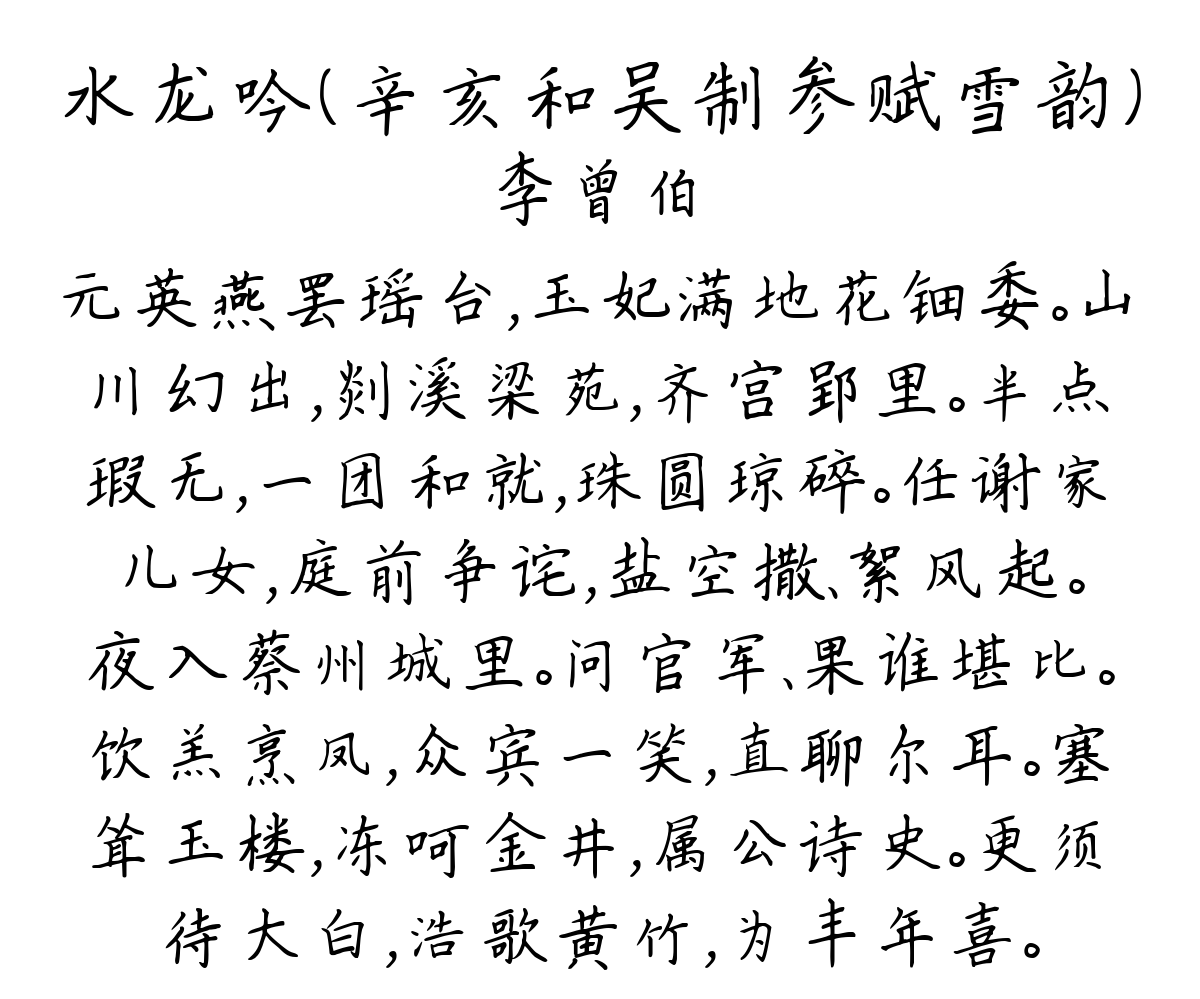 水龙吟(辛亥和吴制参赋雪韵)
李曾伯
元英燕罢瑶台,玉妃满地花钿委。山
川幻出,剡溪梁苑,齐宫郢里。半点
瑕无,一团和就,珠圆琼碎。任谢家
儿女,庭前争诧,盐空撒、絮风起。
夜入蔡州城里。问官军、果谁堪比。
饮羔烹凤,众宾一笑,直聊尔耳。塞
耸玉楼,冻呵金井,属公诗史。更须
待大白,浩歌黄竹,为丰年喜。